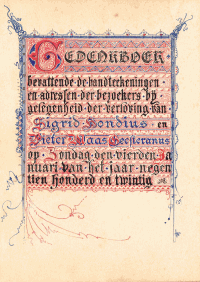 GEDENKBOEK
bevattende de handteekeningen
en adressen der bezoekers bij
gelegenheid der verloving van:
Sigrid Bondius en
Pieter Maas Geesteranus
op Zondag den vierden Ja
nuari van het jaar negen
tien honderd en twintig